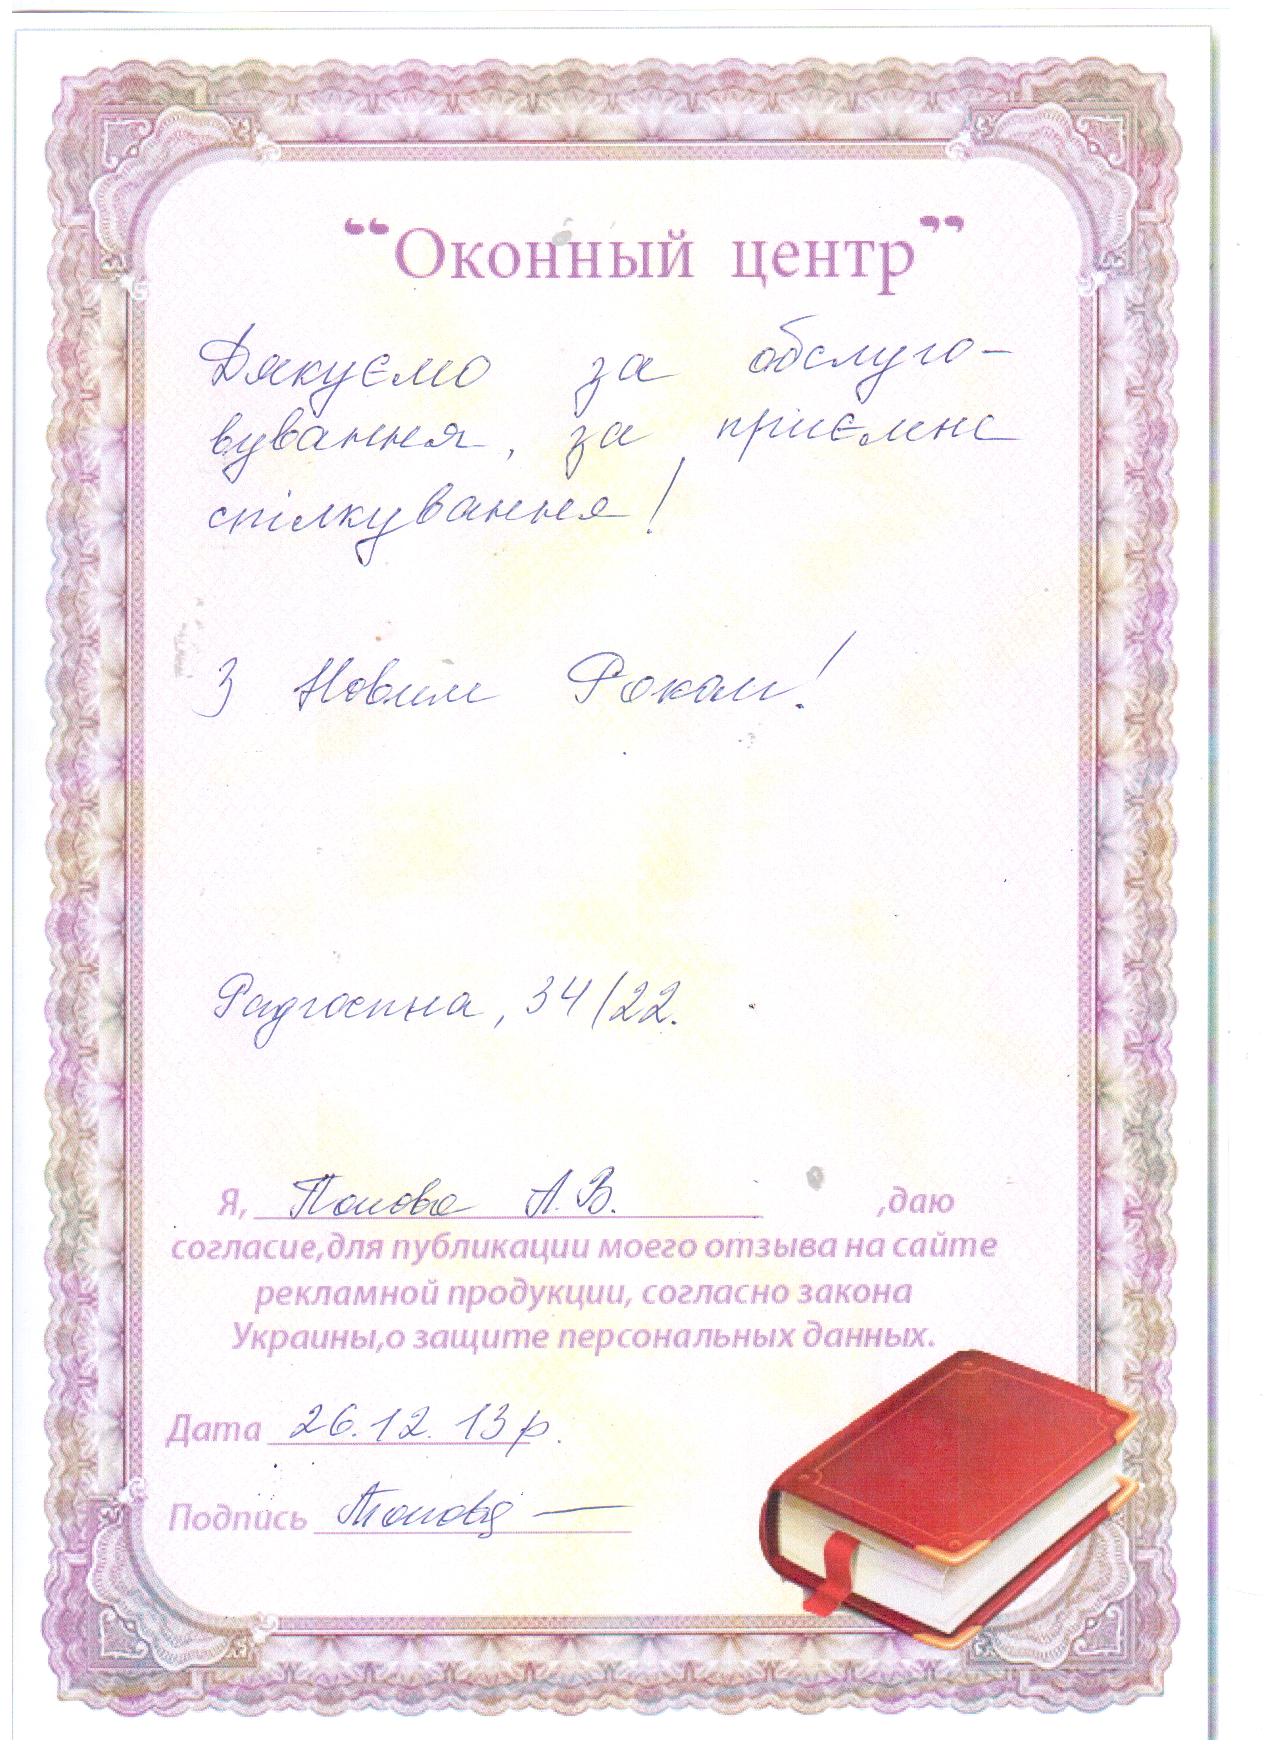 “Оконный центр”
Дякуємо за обслуго-
вування, за приємне
спілкування!
З Новим Роком!
Радгоспна, 34/22.
Я, Попова А.В. ,даю
согласие,для публикации моего отзыва на сайте
рекламной продукции, согласно закона
Украины,о защите персональных данных.
Дата 26.12.13р.
Подпись